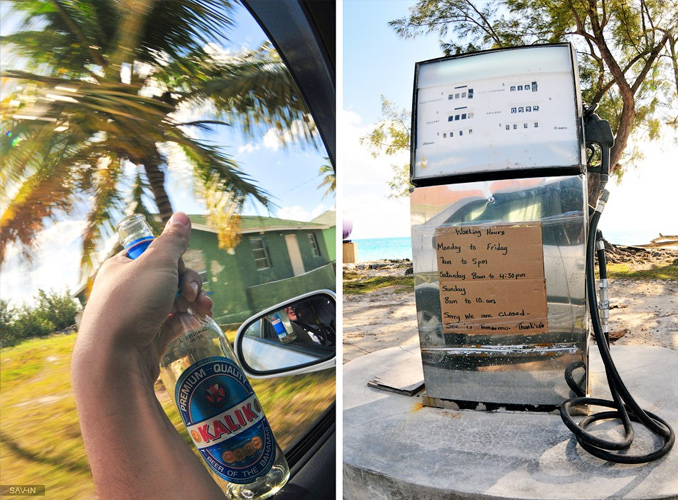 PREMIUM QUALITY
KALIK
BEER OF THE BAHAMAS
SAVIN
Working Hours
Monday to Friday
7am to 5pm
Saturday 8am to 4:30pm
Sunday
8am to 10.am
Sorry We are Closed.
See u tomorrow. Thank U